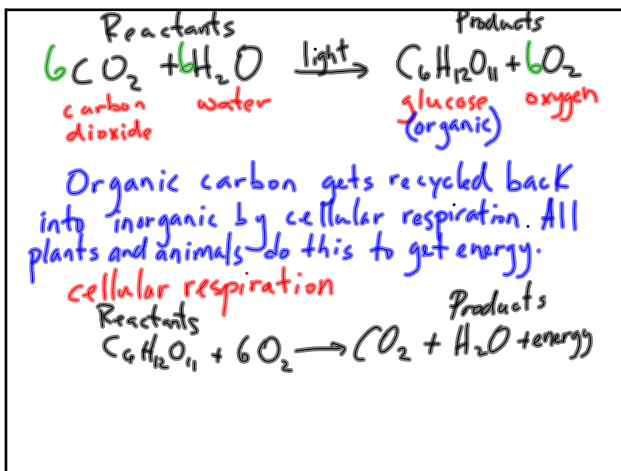 Reactants Products
6CO₂ + 6H₂O light → C₆H₁₂O₁₁ + 6O₂
carbon dioxide water glucose (organic) oxygen
Organic carbon gets recycled back
into inorganic by cellular respiration. All
plants and animals do this to get energy.
cellular respiration
Reactants Products
C₆H₁₂O₁₁ + 6O₂ → CO₂ + H₂O + energy